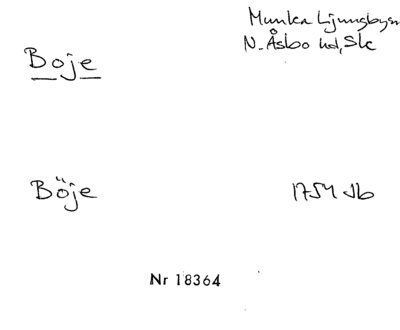 Munka Ljungbyn
N. Åsbo hd, Sk
Boje
Böje
1754 Jb
Nr 18364